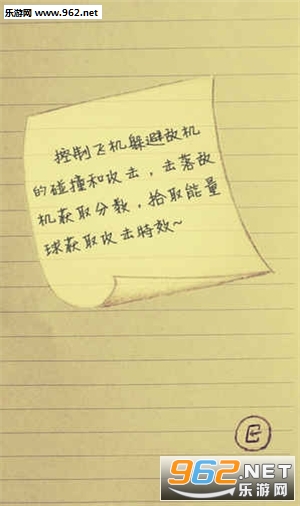 乐游网 www.962.net
控制飞机躲避敌机
的碰撞和攻击，击落敌
机获取分数，拾取能量
球获取攻击特效~
962.NET
乐游网